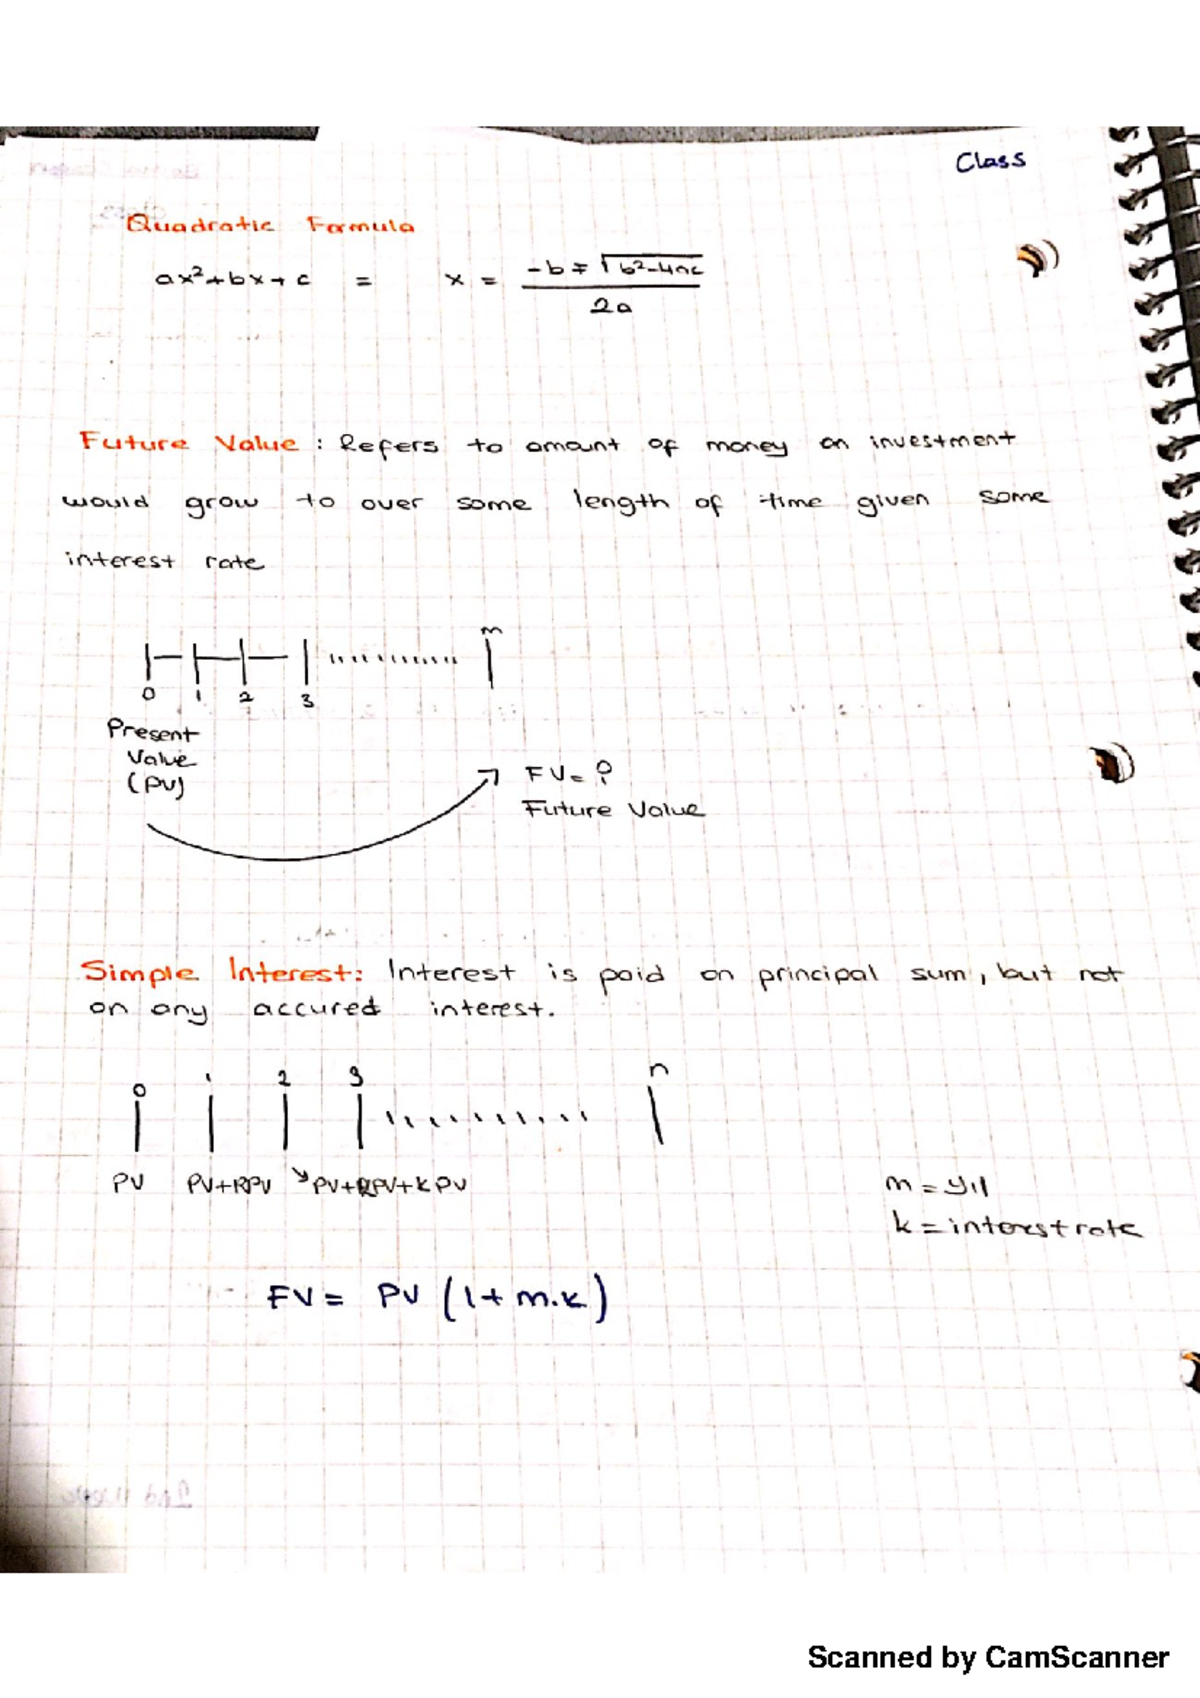 Class
Quadratic Formula
ax²+bx+c = x = -b∓√b²-4ac
2a
Future Value : Refers to amount of money an investment
would grow to over some length of time given some
interest rate
m
0 1 2 3
Present
Value
(PV)
FV= ?
Future Value
Simple Interest: Interest is paid on principal sum, but not
on any accured interest.
0 1 2 3 n
PV PV+RPV PV+RPV+kPV
m = yıl
k = interest rate
FV = PV (1+ m.k)
Scanned by CamScanner